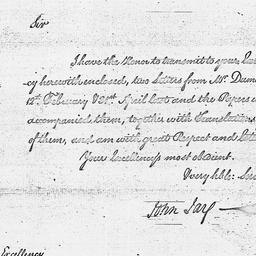 Sir
I have the Honor to transmit to your Excellen-
cy herewith enclosed, two Letters from Mr. Dumas
12th February & 21st April last and the Papers which
accompanied them, together with Translations
of them, and am with great Respect and Esteem
Your Excellency's most obedient.
Very hble: Serv
John Jay
Excellency